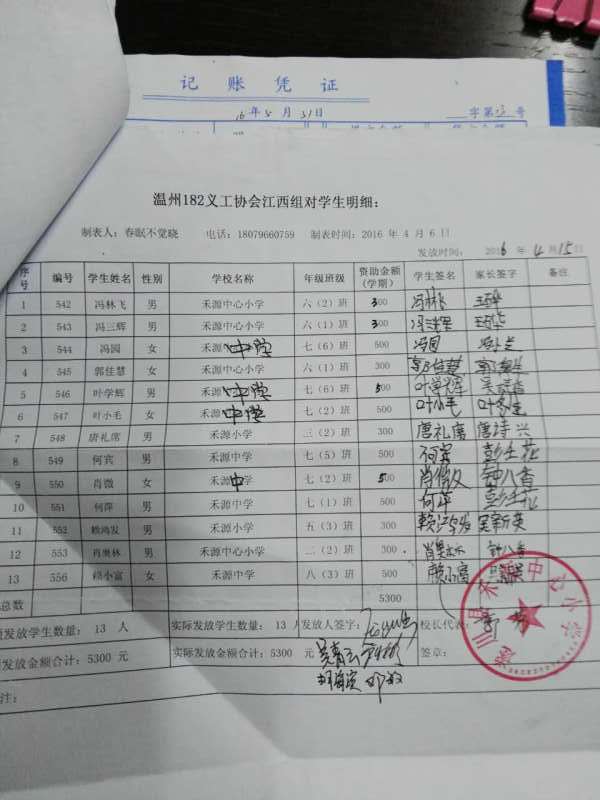 记 账 凭 证
16年5月31日
字第 号
温州182义工协会江西组对学生明细：
制表人：春眠不觉晓 电话：18079660759 制表时间：2016 年 4 月 6 日
发放时间： 2016 年 4 月 15 日
序号 编号 学生姓名 性别 学校名称 年级班级 资助金额(学期) 学生签名 家长签字 备注
1 542 冯林飞 男 禾源中心小学 六（2）班 300 冯林飞
2 543 冯三辉 男 禾源中心小学 六（1）班 300 冯三辉
3 544 冯园 女 禾源中学 七（6）班 500 冯园
4 545 郭佳慧 女 禾源中心小学 六（1）班 300 郭佳慧
5 546 叶学辉 男 禾源中学 七（6）班 500 叶学辉
6 547 叶小毛 女 禾源中学 七（2）班 500 叶小毛
7 548 唐礼席 男 禾源小学 三（2）班 300 唐礼席 唐诗兴
8 549 何宾 男 禾源中学 七（5）班 500 何宾 彭土花
9 550 肖微 女 禾源中学 七（2）班 500 肖微 钟八香
10 551 何萍 男 禾源中学 七（1）班 500 何萍 彭土花
11 552 赖鸿发 男 禾源小学 五（3）班 300 吴新英
12 553 肖奥林 男 禾源中心小学 二（2）班 300 钟八香
13 556 赖小富 女 禾源中学 八（3）班 500 赖小富
总数 5300
发放学生数量： 13 人 实际发放学生数量： 13 人 发放人签字： 校长代表：
发放金额合计：5300 元 实际发放金额合计：5300 元 签章：
注：